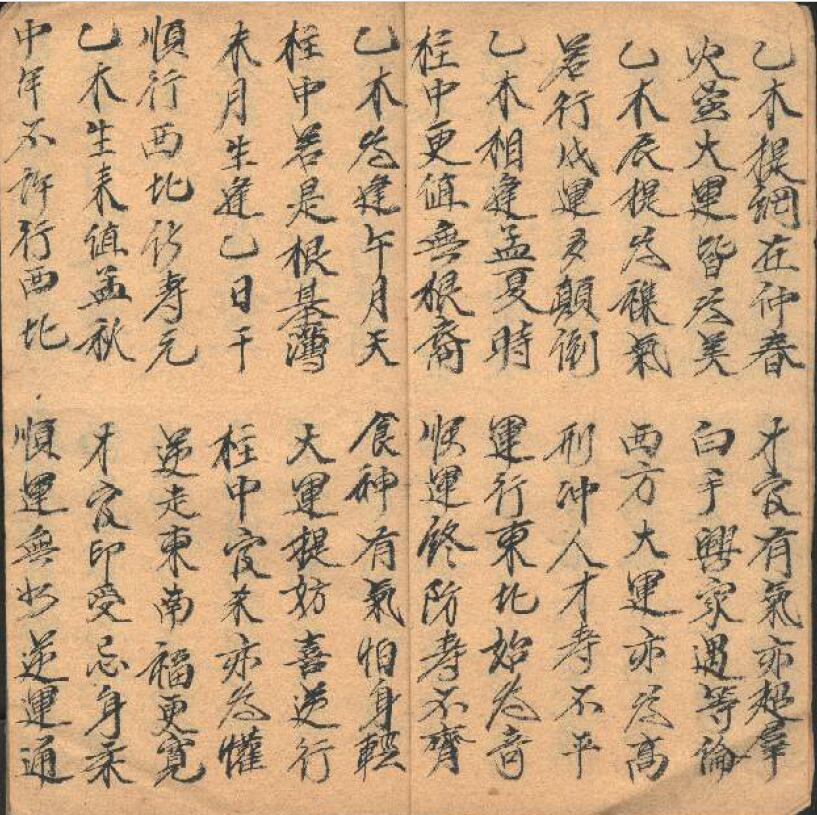 乙木提綱在仲春 才官有氣亦超羣
火大運皆为美 白手興家過等倫
乙木辰提为襍氣 西方大運亦为高
若行戌運多顛倒 刑冲人才寿不平
乙木相逢孟夏時 運行東北始为奇
柱中更值無根裔 順運終防寿不齊
乙木为逢午月天 食神有氣怕身輕
柱中若是根基薄 大運提妨喜逆行
未月生逢乙日干 柱中官杀亦为懽
順行西北寿元 逆走東南福更寬
乙木生来值孟秋 才官印受忌身柔
中年不許行西北 順運無如逆運通